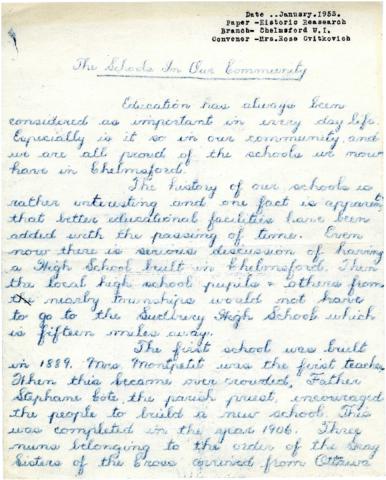 Date ..January.1953.
Paper -Historic Reasearch
Branch- Chelmsford W.I.
Convener -Mrs.Rose Cvitkovich
The Schools In Our Community
Education has always been
considered as important in every day life.
Especially is it so in our community, and
we are all proud of the schools we now
have in Chelmsford.
The history of our schools is
rather interesting and one fact is apparent
that better educational facilities have been
added with the passing of time. Even
now there is serious discussion of having
a High School built in Chelmsford. Then
the local high school pupils & others from
the nearby townships would not have
to go to the Sudbury High School which
is fifteen miles away.
The first school was built
in 1889. Mrs. Montpetit was the first teacher
When this became over crowded, Father
Stephane Cote, the parish priest, encouraged
the people to build a new school. This
was completed in the year 1906. Three
nuns belonging to the order of the Gray
Sisters of the Cross arrived from Ottawa